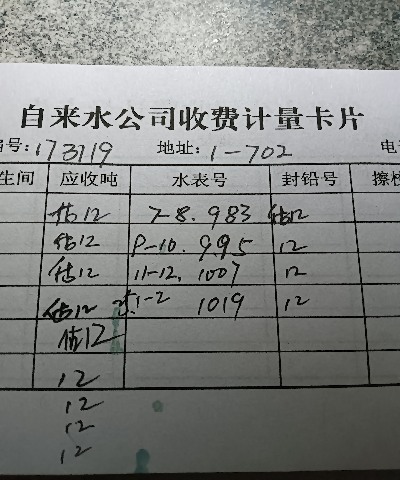 自来水公司收费计量卡片
编号:173119 地址: 1-702
生间 应收吨 水表号 封铅号
估12 7-8. 983 估12
估12 9-10. 995 12
估12 11-12. 1007 12
估12 1-2 1019 12
估12
12
12
12
12